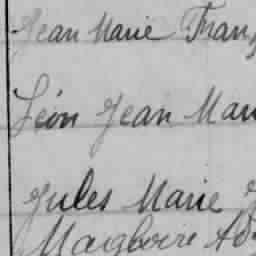 Jean Marie Fran
Léon Jean Mari
Jules Marie J
Magloire Ad